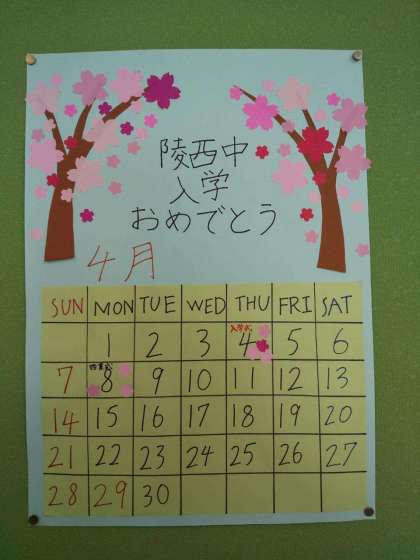 陵西中
入学
おめでとう
4月
SUN MON TUE WED THU FRI SAT
入学式
1 2 3 4 5 6
始業式
7 8 9 10 11 12 13
14 15 16 17 18 19 20
21 22 23 24 25 26 27
28 29 30